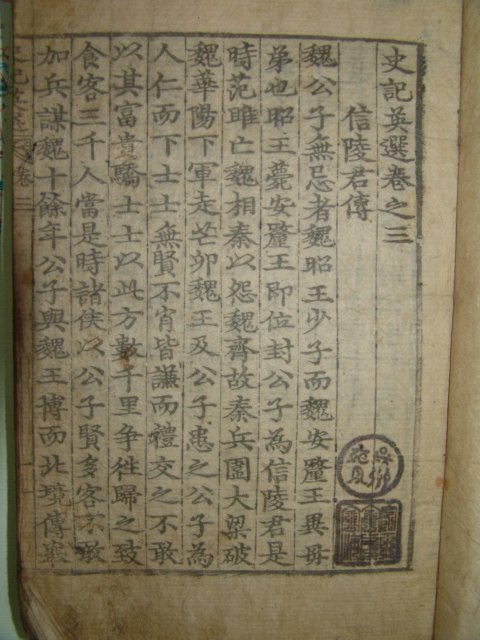 史記英選卷之三
信陵君傳
魏公子無忌者魏昭王少子而魏安釐王異母
弟也昭王薨安釐王即位封公子為信陵君是
時范雎亡魏相秦以怨魏齊故秦兵圍大梁破
魏華陽下軍走芒卯魏王及公子患之公子為
人仁而下士士無賢不肖皆謙而禮交之不敢
以其富貴驕士士以此方數千里爭徃歸之致
食客三千人當是時諸侯以公子賢多客不敢
加兵謀魏十餘年公子與魏王博而北境傳
史記英選 卷三